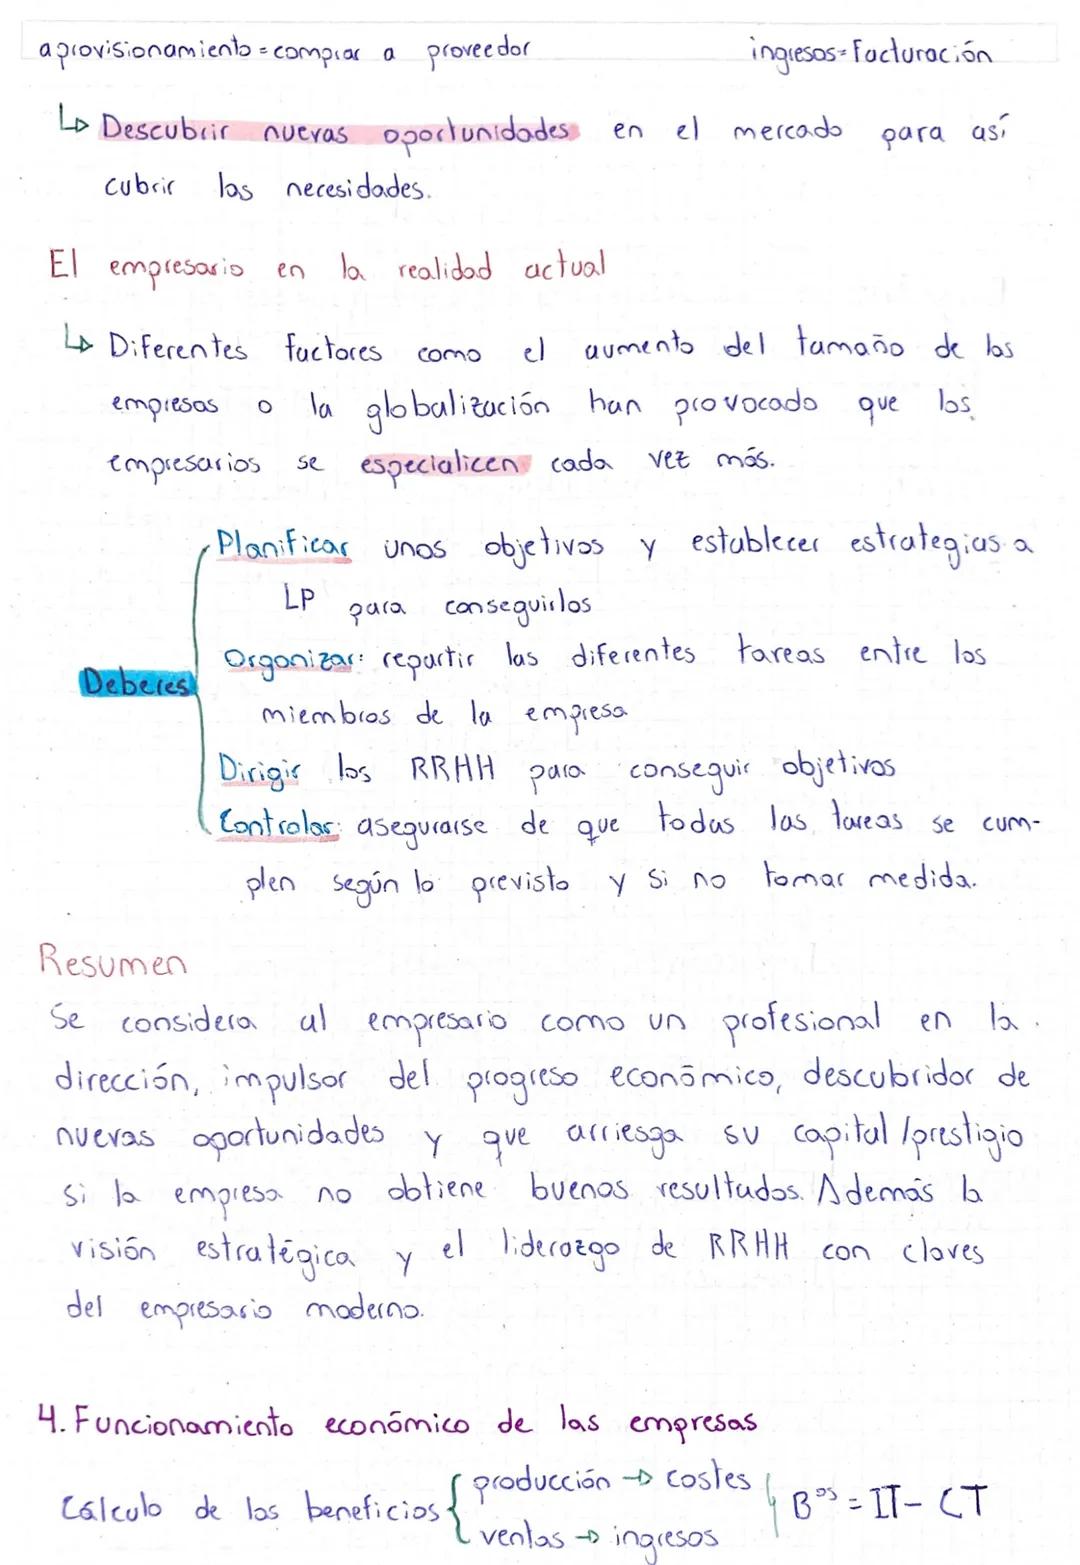 aprovisionamiento = comprar a proveedor ingresos = Facturación
↳ Descubrir nuevas oportunidades en el mercado para así
cubrir las necesidades.
El empresario en la realidad actual
↳ Diferentes factores como el aumento del tamaño de las
empresas o la globalización han provocado que los
empresarios se especialicen cada vez más.
Planificar unos objetivos y establecer estrategias a
LP para conseguirlos
Organizar: repartir las diferentes tareas entre los
Deberes
miembros de la empresa
Dirigir los RRHH para conseguir objetivos
Controlar: asegurarse de que todas las tareas se cum-
plen según lo previsto y si no tomar medida.
Resumen
Se considera al empresario como un profesional en la
dirección, impulsor del progreso económico, descubridor de
nuevas oportunidades y que arriesga su capital/prestigio
si la empresa no obtiene buenos resultados. Además la
visión estratégica y el liderazgo de RRHH con claves
del empresario moderno.
4. Funcionamiento económico de las empresas
Cálculo de los beneficios { producción → costes } Bºˢ = IT - CT
ventas → ingresos